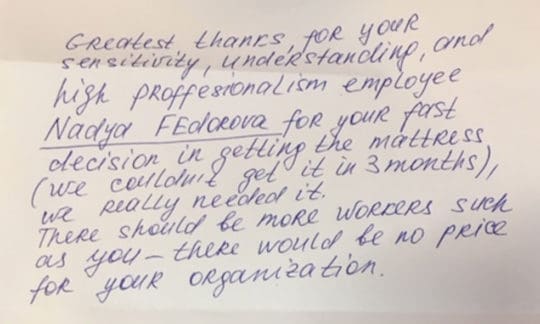 Greatest thanks, for your
sensitivity, understanding, and
high proffesionalism employee
Nadya FEdorova for your fast
decision in getting the mattress
(we couldn't get it in 3 months),
we really needed it.
There should be more workers such
as you – there would be no price
for your organization.